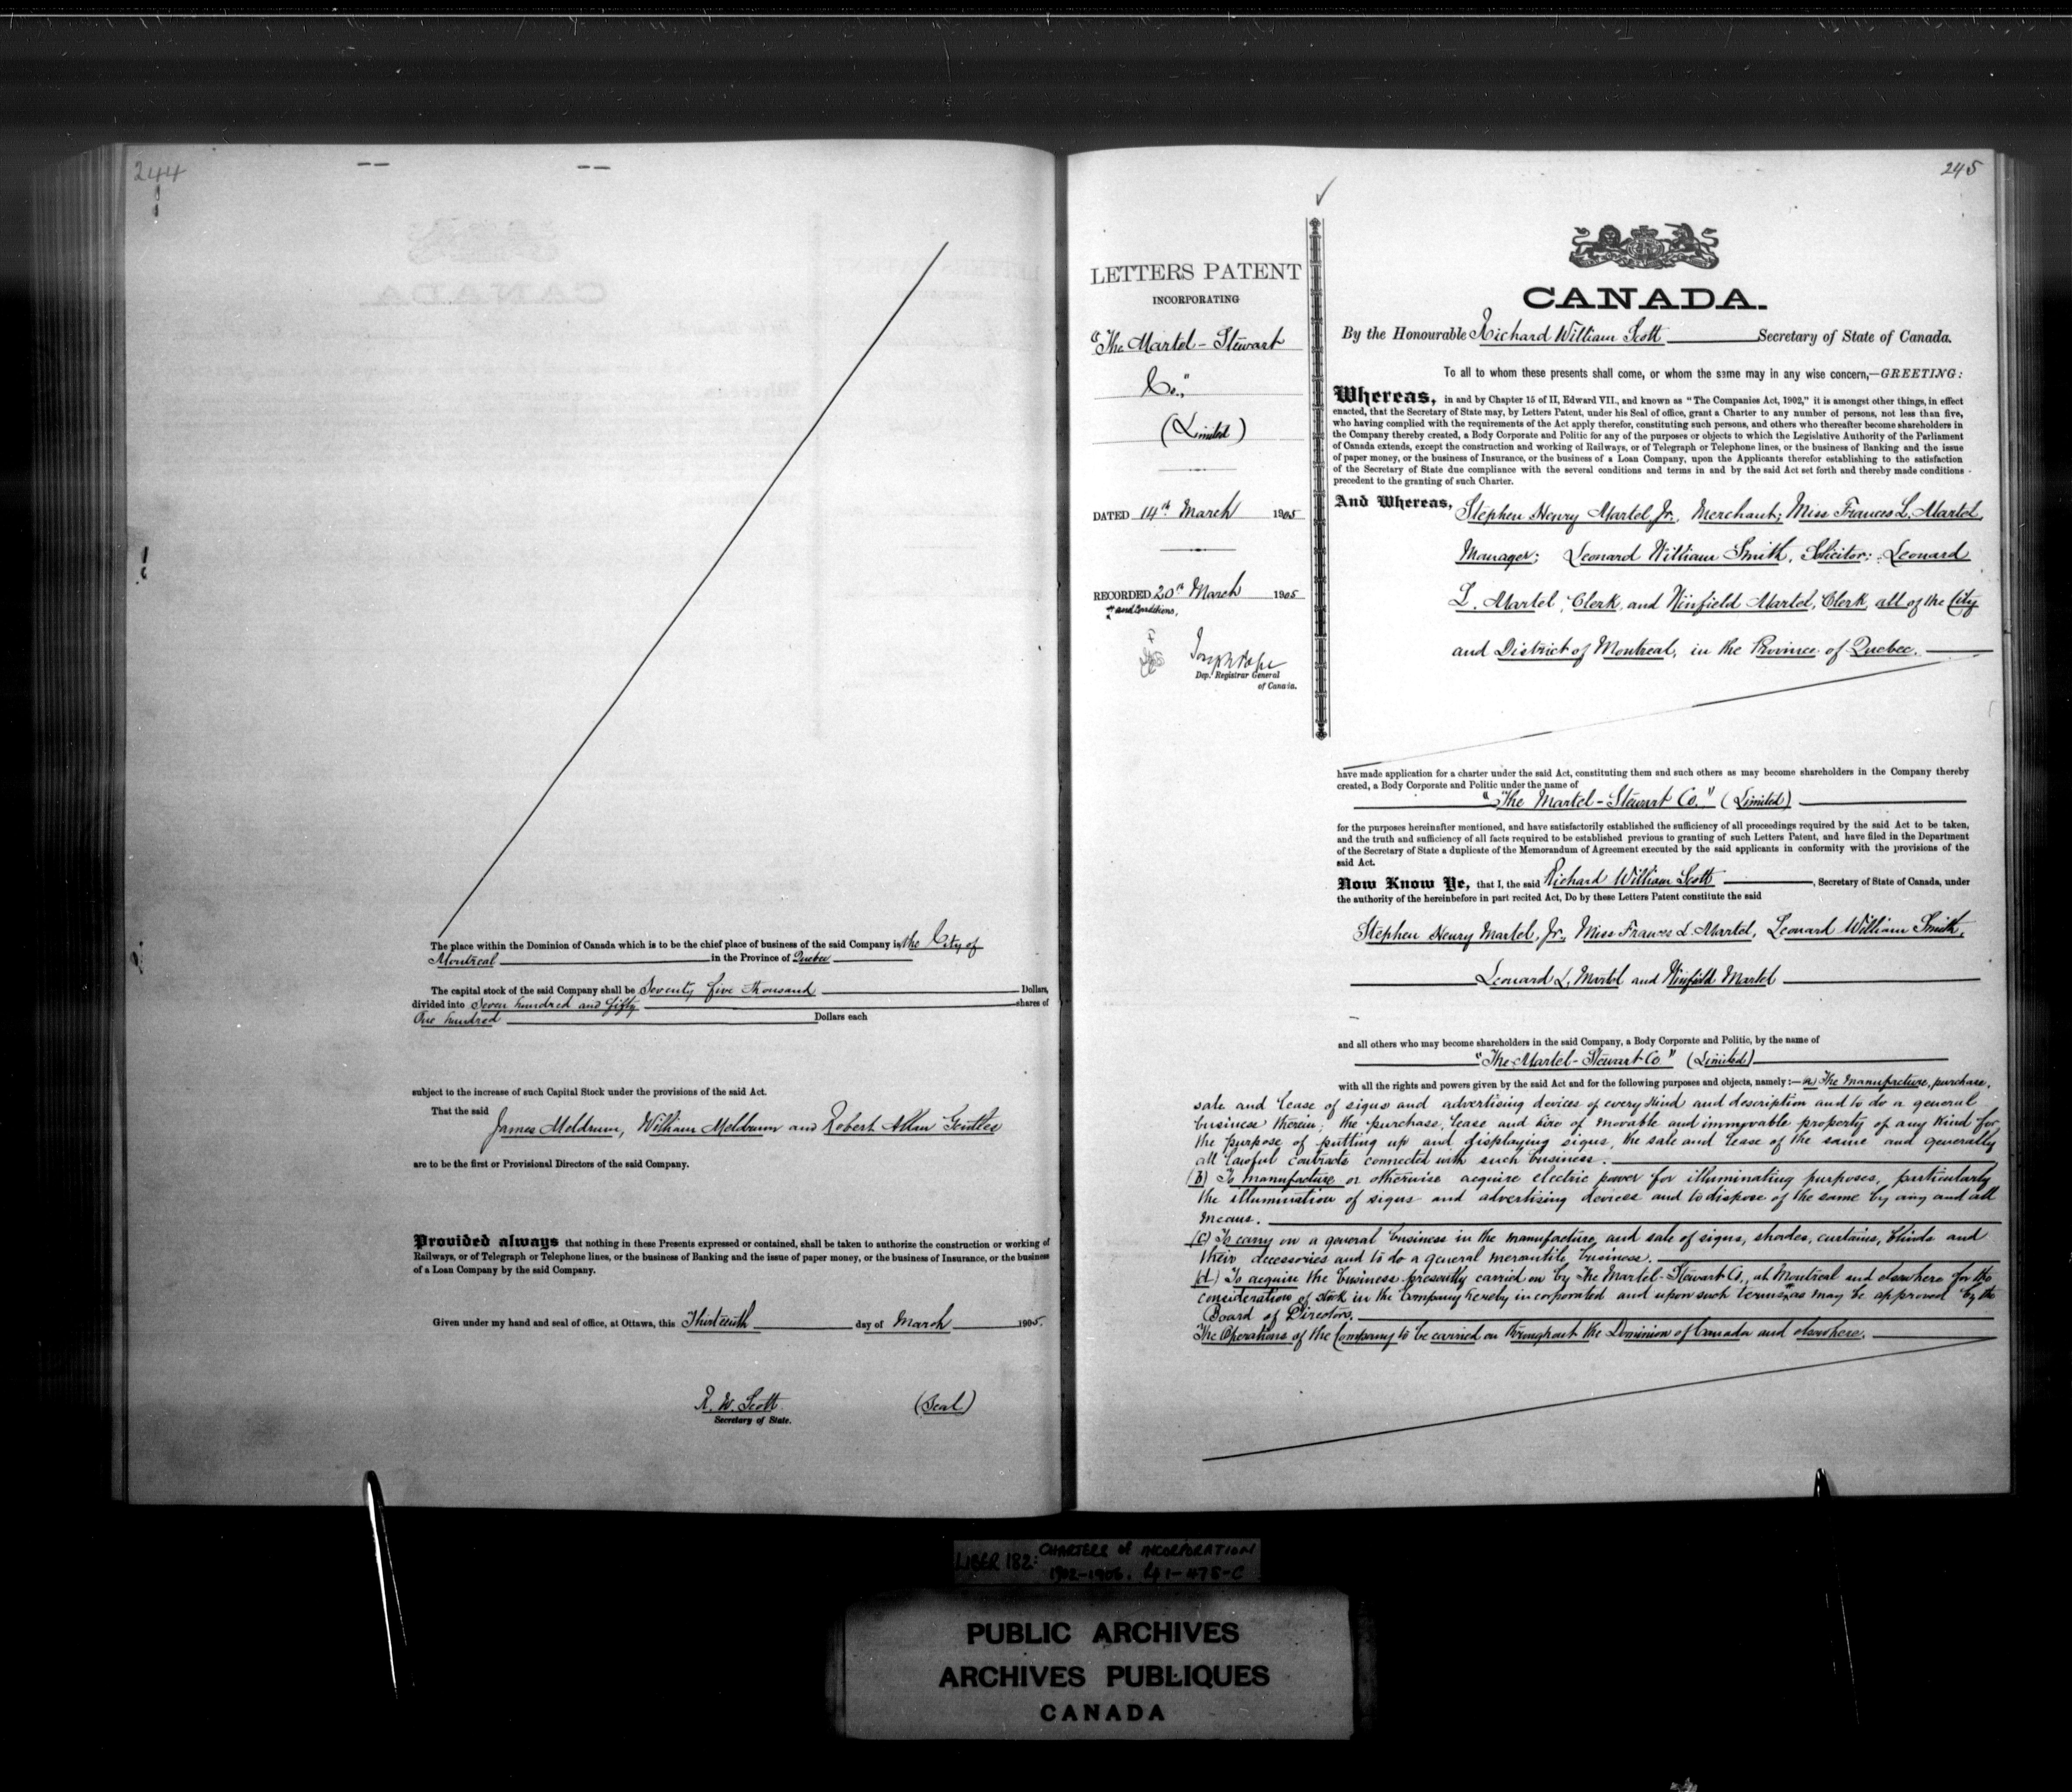 244
The place within the Dominion of Canada which is to be the chief place of business of the said Company is the City of
Montreal in the Province of Quebec
The capital stock of the said Company shall be Seventy five thousand Dollars,
divided into Seven hundred and fifty shares of
One hundred Dollars each
subject to the increase of such Capital Stock under the provisions of the said Act.
That the said
James Meldrum, William Meldrum and Robert Allan
are to be the first or Provisional Directors of the said Company.
Provided always that nothing in these Presents expressed or contained, shall be taken to authorize the construction or working of
Railways, or of Telegraph or Telephone lines, or the business of Banking and the issue of paper money, or the business of Insurance, or the business
of a Loan Company by the said Company.
Given under my hand and seal of office, at Ottawa, this Thirteenth day of March 1905.
R. W. Scott
Secretary of State.
(Seal)
245
LETTERS PATENT
INCORPORATING
"The Martel-Stewart
Co."
(Limited)
DATED 14th March 1905
RECORDED 20th March 1905
and conditions,
Joseph Pope
Dep. Registrar General
of Canada.
CANADA.
By the Honourable Richard William Scott Secretary of State of Canada.
To all to whom these presents shall come, or whom the same may in any wise concern,—GREETING:
Whereas, in and by Chapter 15 of II, Edward VII., and known as "The Companies Act, 1902," it is amongst other things, in effect
enacted, that the Secretary of State may, by Letters Patent, under his Seal of office, grant a Charter to any number of persons, not less than five,
who having complied with the requirements of the Act apply therefor, constituting such persons, and others who thereafter become shareholders in
the Company thereby created, a Body Corporate and Politic for any of the purposes or objects to which the Legislative Authority of the Parliament
of Canada extends, except the construction and working of Railways, or of Telegraph or Telephone lines, or the business of Banking and the issue
of paper money, or the business of Insurance, or the business of a Loan Company, upon the Applicants therefor establishing to the satisfaction
of the Secretary of State due compliance with the several conditions and terms in and by the said Act set forth and thereby made conditions
precedent to the granting of such Charter.
And Whereas, Stephen Henry Martel, Jr., Merchant; Miss Frances L. Martel,
Manager; Leonard William Smith, Solicitor; Leonard
L. Martel, Clerk, and Winfield Martel, Clerk, all of the City
and District of Montreal, in the Province of Quebec.
have made application for a charter under the said Act, constituting them and such others as may become shareholders in the Company thereby
created, a Body Corporate and Politic under the name of
"The Martel-Stewart Co." (Limited)
for the purposes hereinafter mentioned, and have satisfactorily established the sufficiency of all proceedings required by the said Act to be taken,
and the truth and sufficiency of all facts required to be established previous to granting of such Letters Patent, and have filed in the Department
of the Secretary of State a duplicate of the Memorandum of Agreement executed by the said applicants in conformity with the provisions of the
said Act.
Now Know Ye, that I, the said Richard William Scott, Secretary of State of Canada, under
the authority of the hereinbefore in part recited Act, Do by these Letters Patent constitute the said
Stephen Henry Martel, Jr., Miss Frances L. Martel, Leonard William Smith,
Leonard L. Martel and Winfield Martel
and all others who may become shareholders in the said Company, a Body Corporate and Politic, by the name of
"The Martel-Stewart Co" (Limited)
with all the rights and powers given by the said Act and for the following purposes and objects, namely:—(a) The manufacture, purchase,
sale and lease of signs and advertising devices of every kind and description and to do a general
business therein; the purchase, lease and hire of movable and immovable property of any kind for
the purpose of putting up and displaying signs, the sale and lease of the same and generally
all lawful contracts connected with such business.
(b) To manufacture or otherwise acquire electric power for illuminating purposes, particularly
the illumination of signs and advertising devices and to dispose of the same by any and all
means.
(c) To carry on a general business in the manufacture and sale of signs, shades, curtains, blinds and
their accessories and to do a general mercantile business.
(d) To acquire the business presently carried on by The Martel-Stewart Co., at Montreal and elsewhere for the
consideration of stock in the Company hereby incorporated and upon such terms as may be approved by the
Board of Directors.
The Operations of the Company to be carried on throughout the Dominion of Canada and elsewhere.
LIBER 182: CHARTERS of INCORPORATION
1902-1906.
PUBLIC ARCHIVES
ARCHIVES PUBLIQUES
CANADA